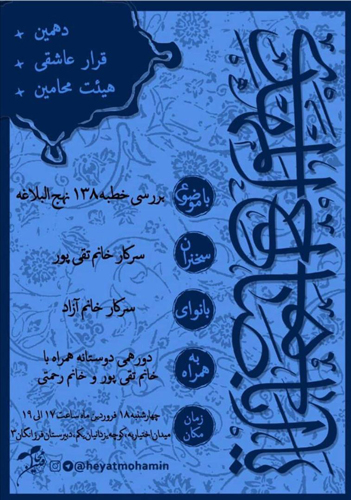 دهمین +
قرار عاشقی +
هیئت محامین +
با موضوع
بررسی خطبه ۱۳۸ نهج البلاغه
سخنران
سرکار خانم تقی پور
بانوای
سرکار خانم آزاد
به همراه
دورهمی دوستانه همراه با
خانم تقی پور و خانم رحمتی
زمان
مکان
چهارشنبه ۱۸ فروردین ماه ساعت ۱۷ الی ۱۹
میدان اختیاریه، کوچه یزدانیان یکم، دبیرستان فرزانگان ۳
@heyatmohamin